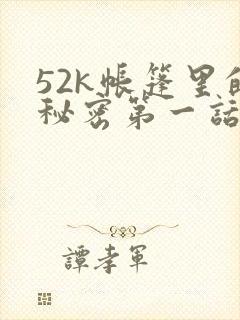 52k帐篷里的
秘密第一話
譚孝軍